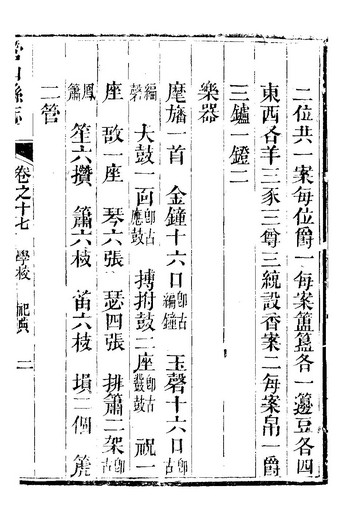 二位共一案每位爵一每案簠簋各一籩豆各四
東西各羊三豕三尊三統設香案二每案帛一爵
三鑪一鐙二
樂器
麾旛一首 金鐘十六口卽古編鐘 玉磬十六口古
編磬 大鼓一面卽古應鼓 搏拊鼓二座卽古鼗鼓 柷一
座 敔一座 琴六張 瑟四張 排簫二架卽古
鳳簫 笙六攢 簫六枝 笛六枝 塤二個 篪
二管
卷之十七 學校 祀典 二